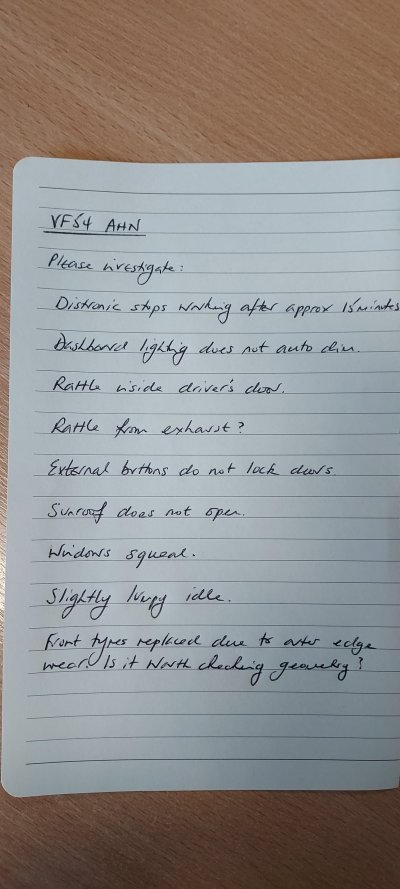 VF54 AHN
Please investigate:
Distronic stops working after approx 15 minutes
Dashboard lighting does not auto dim.
Rattle inside driver's door.
Rattle from exhaust?
External buttons do not lock doors.
Sunroof does not open.
Windows squeal.
Slightly lumpy idle.
Front tyres replaced due to outer edge
wear. Is it worth checking geometry?